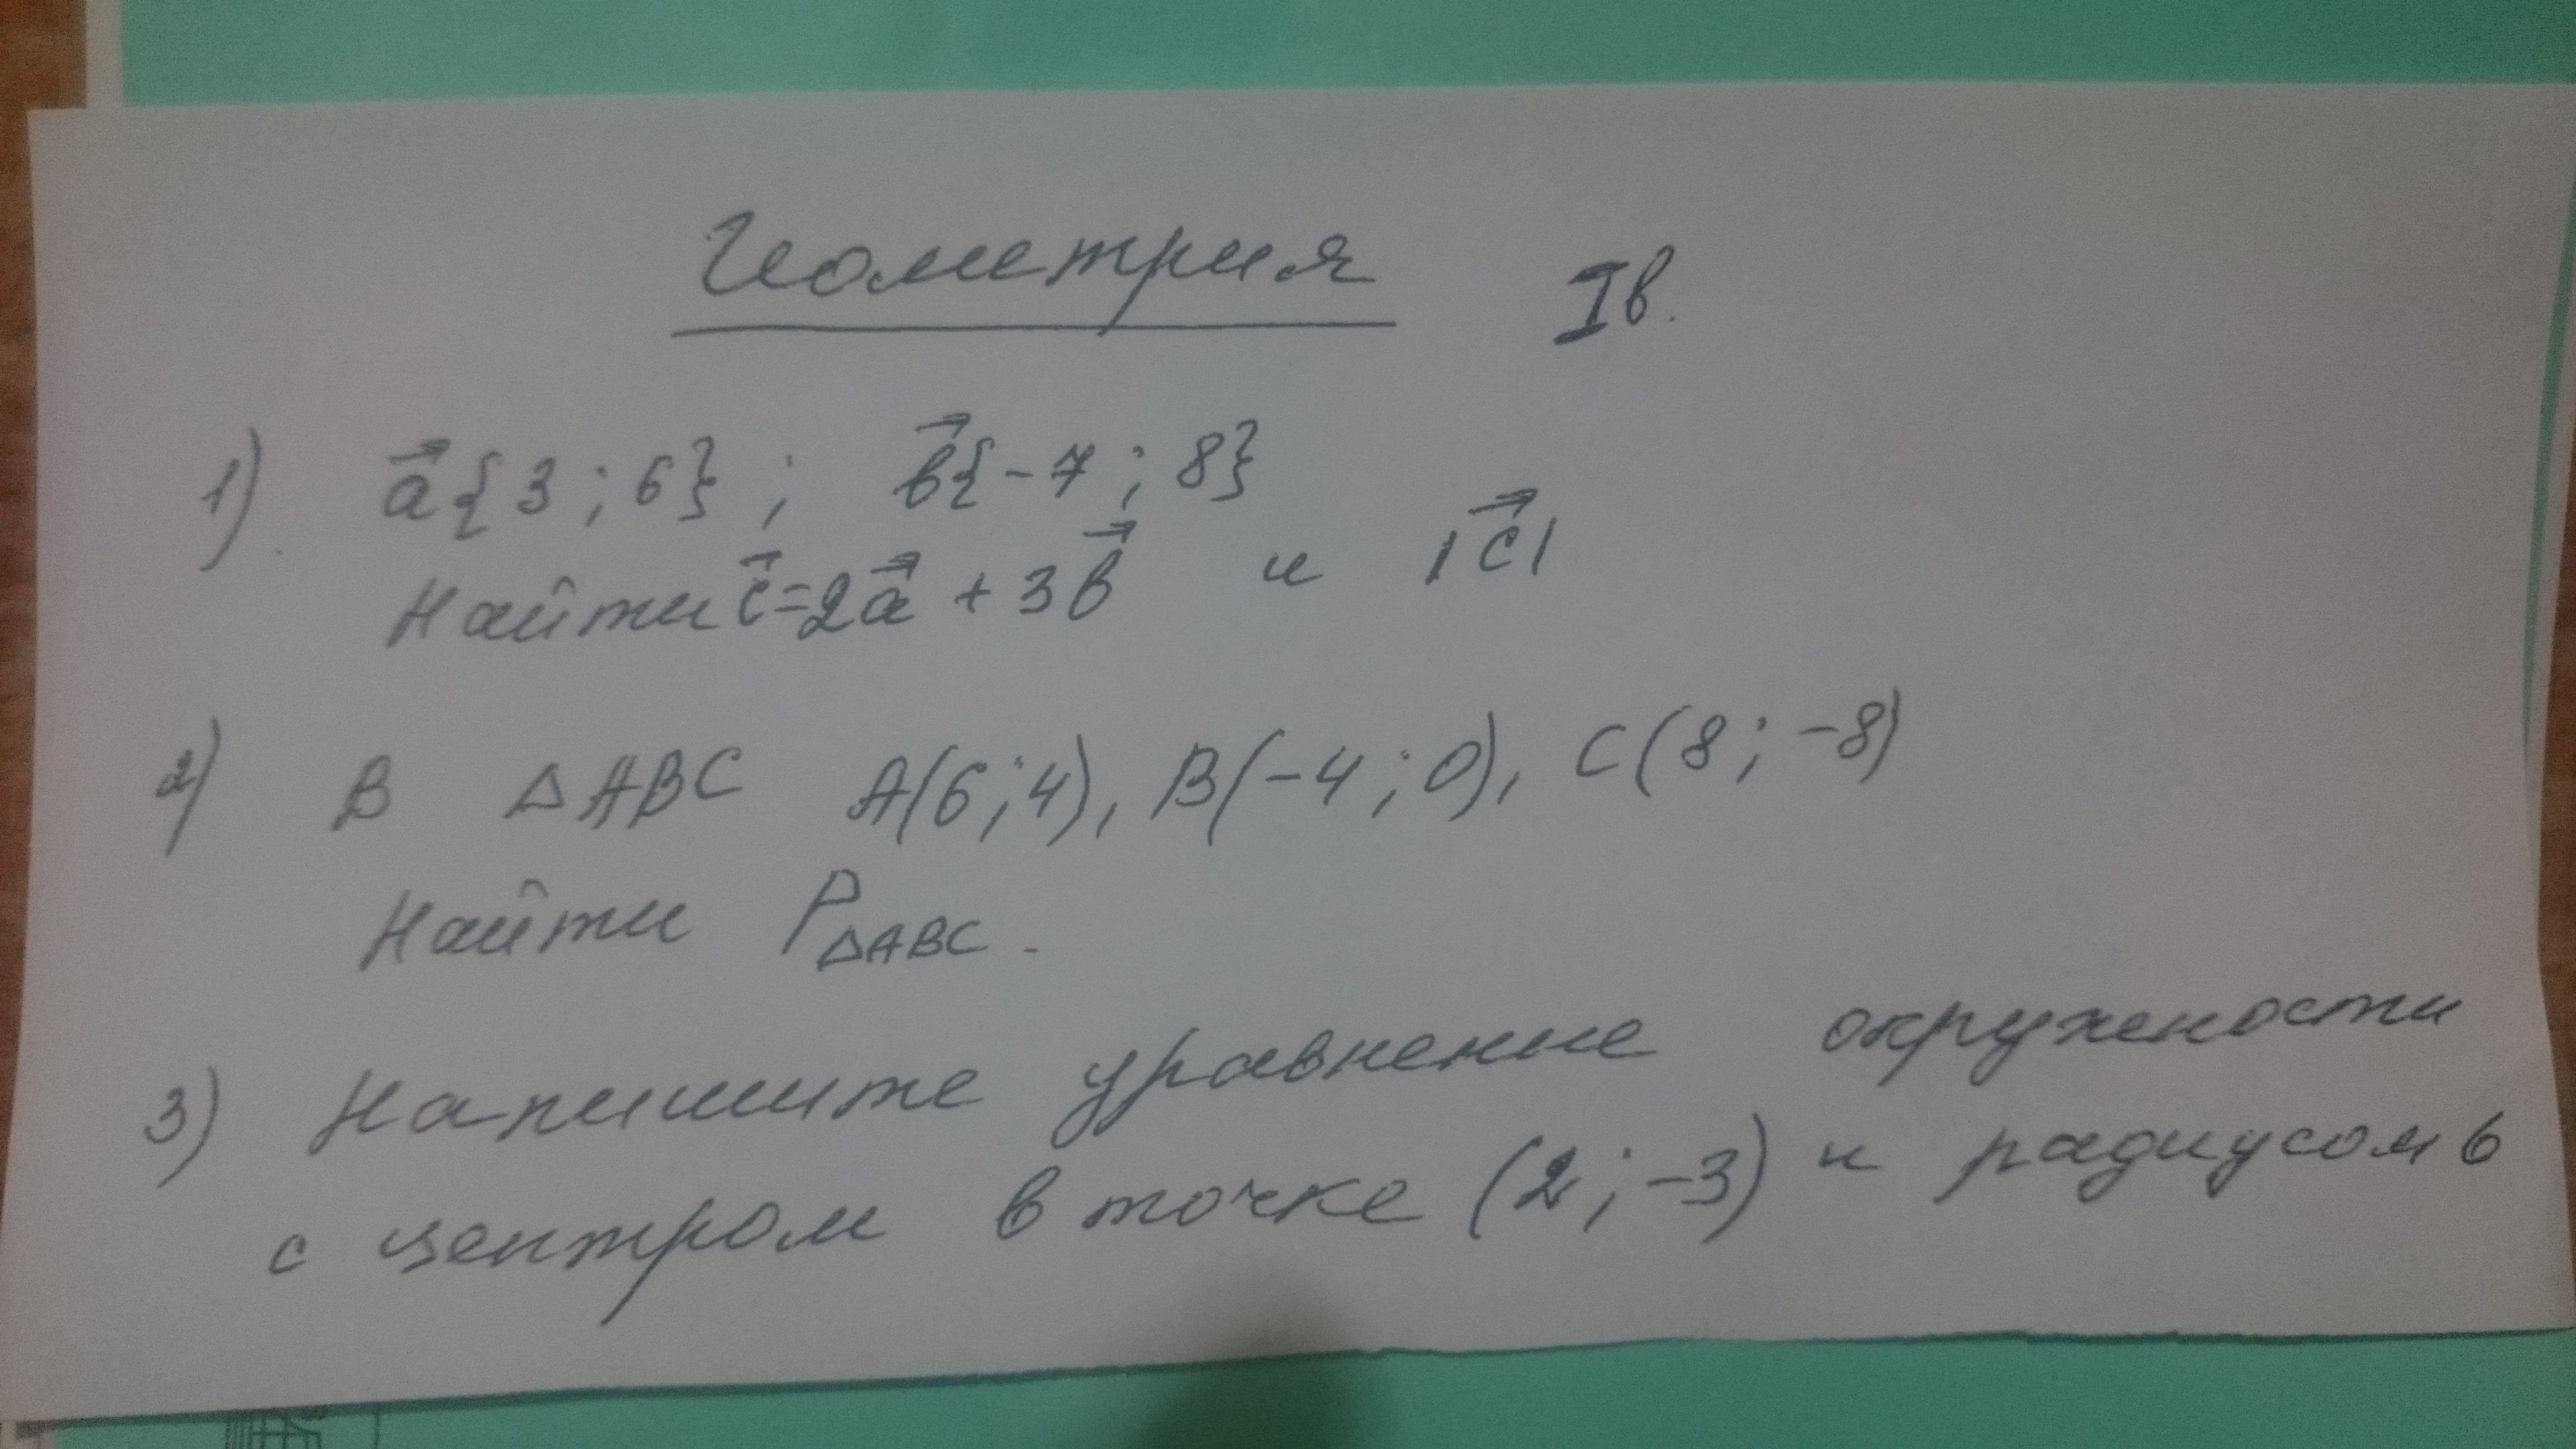 Геометрия Iв.
1) a⃗{3;6}; b⃗{-7;8}
Найти c⃗=2a⃗+3b⃗ и |c⃗|
2) В △ABC A(6;4), B(-4;0), C(8;-8)
Найти P△ABC.
3) Напишите уравнение окружности
с центром в точке (2;-3) и радиусом 6